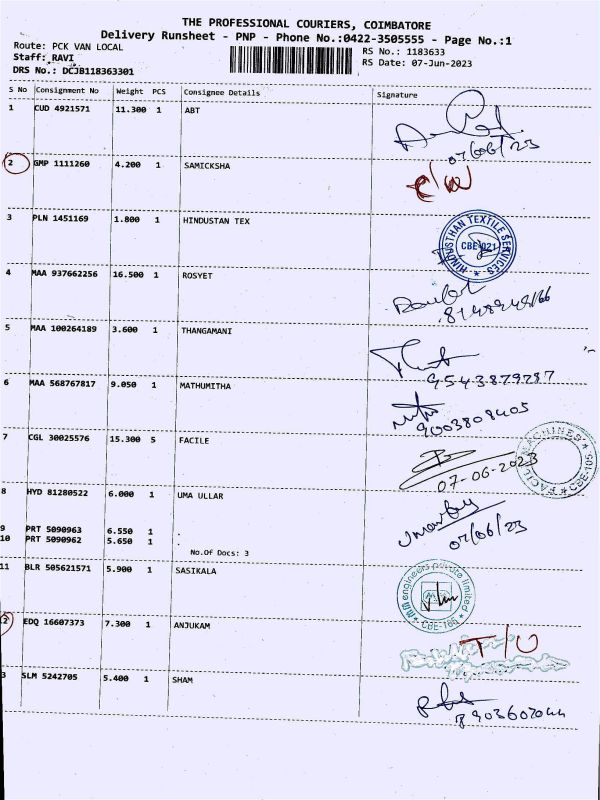 THE PROFESSIONAL COURIERS, COIMBATORE
Delivery Runsheet - PNP - Phone No.:0422-3505555 - Page No.:1
Route: PCK VAN LOCAL
RS No.: 1183633
Staff: RAVI
RS Date: 07-Jun-2023
DRS No.: DCJB118363301
S No Consignment No Weight PCS Consignee Details Signature
1 CUD 4921571 11.300 1 ABT
07/06/23
2 GMP 1111260 4.200 1 SAMICKSHA
3 PLN 1451169 1.800 1 HINDUSTAN TEX
HINDUSTHAN TEXTILE SERVICES
CBE-021
4 MAA 937662256 16.500 1 ROSYET
5 MAA 100264189 3.600 1 THANGAMANI
9543879787
6 MAA 568767817 9.050 1 MATHUMITHA
9003808405
7 CGL 30025576 15.300 5 FACILE
07-06-2023
MACHINES
CBE-105
8 HYD 81280522 6.000 1 UMA ULLAR
07/06/23
9 PRT 5090963 6.550 1 .
10 PRT 5090962 5.650 1 .
No.Of Docs: 3
11 BLR 505621571 5.900 1 SASIKALA
engineers private limited
2 EDQ 16607373 7.300 1 ANJUKAM
T/U
3 SLM 5242705 5.400 1 SHAM